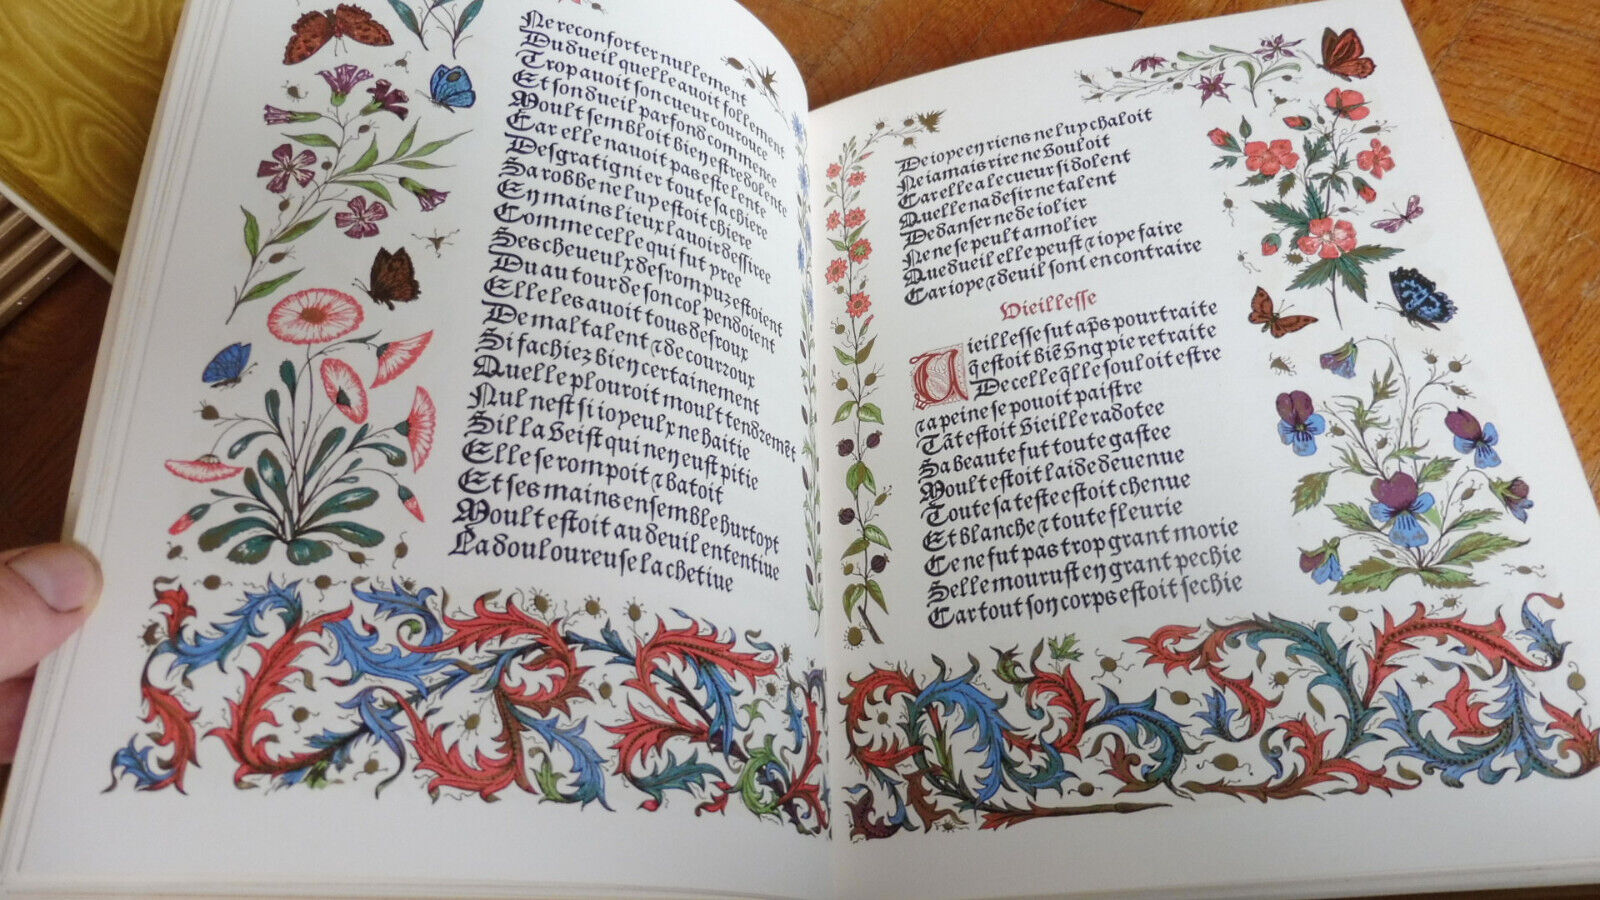 Ne reconforter nullement
Du dueil quelle auoit follement
Trop auoit son cueur courouce
Et son dueil parfond commence
Moult sembloit bien estre dolente
Car elle nauoit pas este lente
Desgratignier toute sa chiere
Sa robbe ne lup estoit chiere
En mains lieux lauoit dessiree
Comme celle qui fut yree
Ses cheueulx desrompuz estoient
Du autour de son col pendoient
Elle les auoit tous desroux
De mal talent & de courroux
Si sachiez bien certainement
Quelle plouroit moult tendremēt
Nul nest si ioyeulx ne haitie
Sil la veist qui nen eust pitie
Elle se rompoit & batoit
Et ses mains ensemble hurtopt
Moult estoit au dueil ententiue
La douloureuse la chetiue
De ioye en riens ne lup chaloit
Ne iamais rire ne vouloit
Car elle a le cueur si dolent
Quelle na desir ne talent
De danser ne de iolier
Ne ne se peult amolier
Que dueil elle peust & ioye faire
Car ioye & deuil sont en contraire
Vieillesse
Vieillesse fut ap̄s pourtraite
q̄ estoit biē vng pie retraite
De celle q̄lle souloit estre
& a peine se pouoit paistre
Tāt estoit vieille radotee
Sa beaute fut toute gastee
Moult estoit laide deuenue
Toute sa teste estoit chenue
Et blanche & toute fleurie
Ce ne fut pas trop grant morie
Selle mourust en grant pechie
Car tout son corps estoit sechie